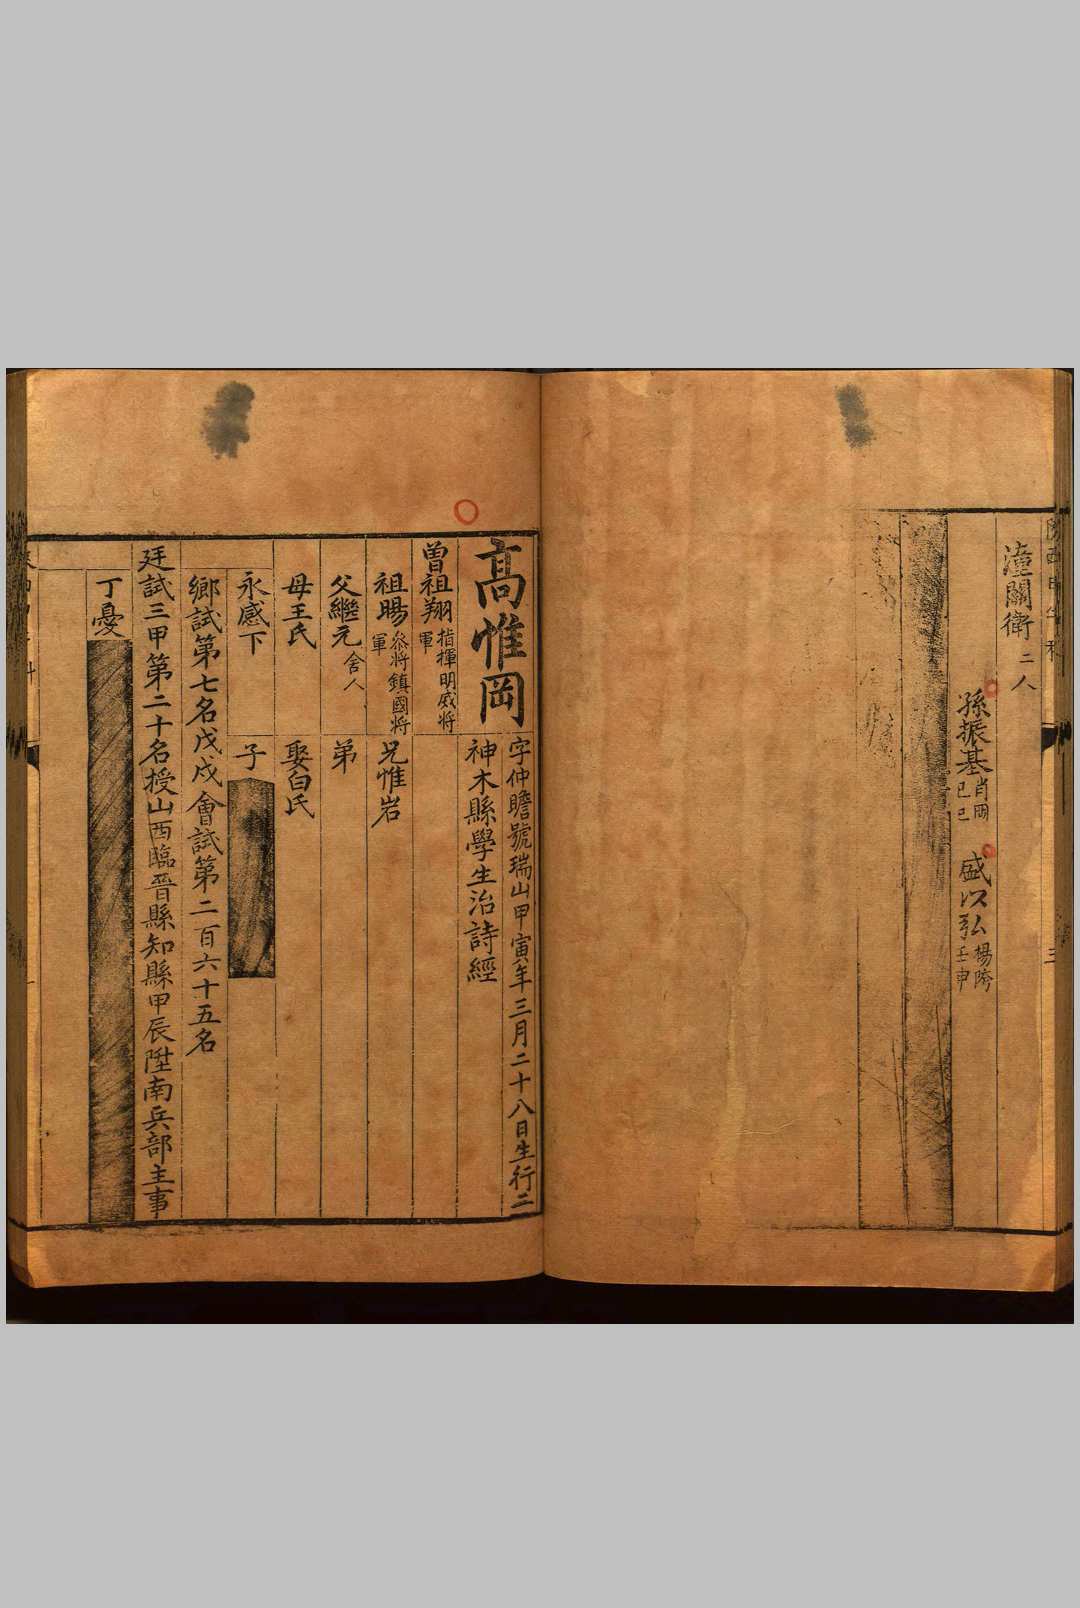 潼關衛二人
孫振基肖岡己巳 盛以弘楊跨壬申
三
高惟岡
字仲瞻號瑞山甲寅年三月二十八日生行二
神木縣學生治詩經
曾祖翔指揮明威將軍
祖暘叅將鎮國將軍
兄惟岩
父繼元舍人
弟
母王氏
娶白氏
永感下
子
鄉試第七名戊戌會試第二百六十五名
廷試三甲第二十名授山西臨晉縣知縣甲辰陞南兵部主事
丁憂